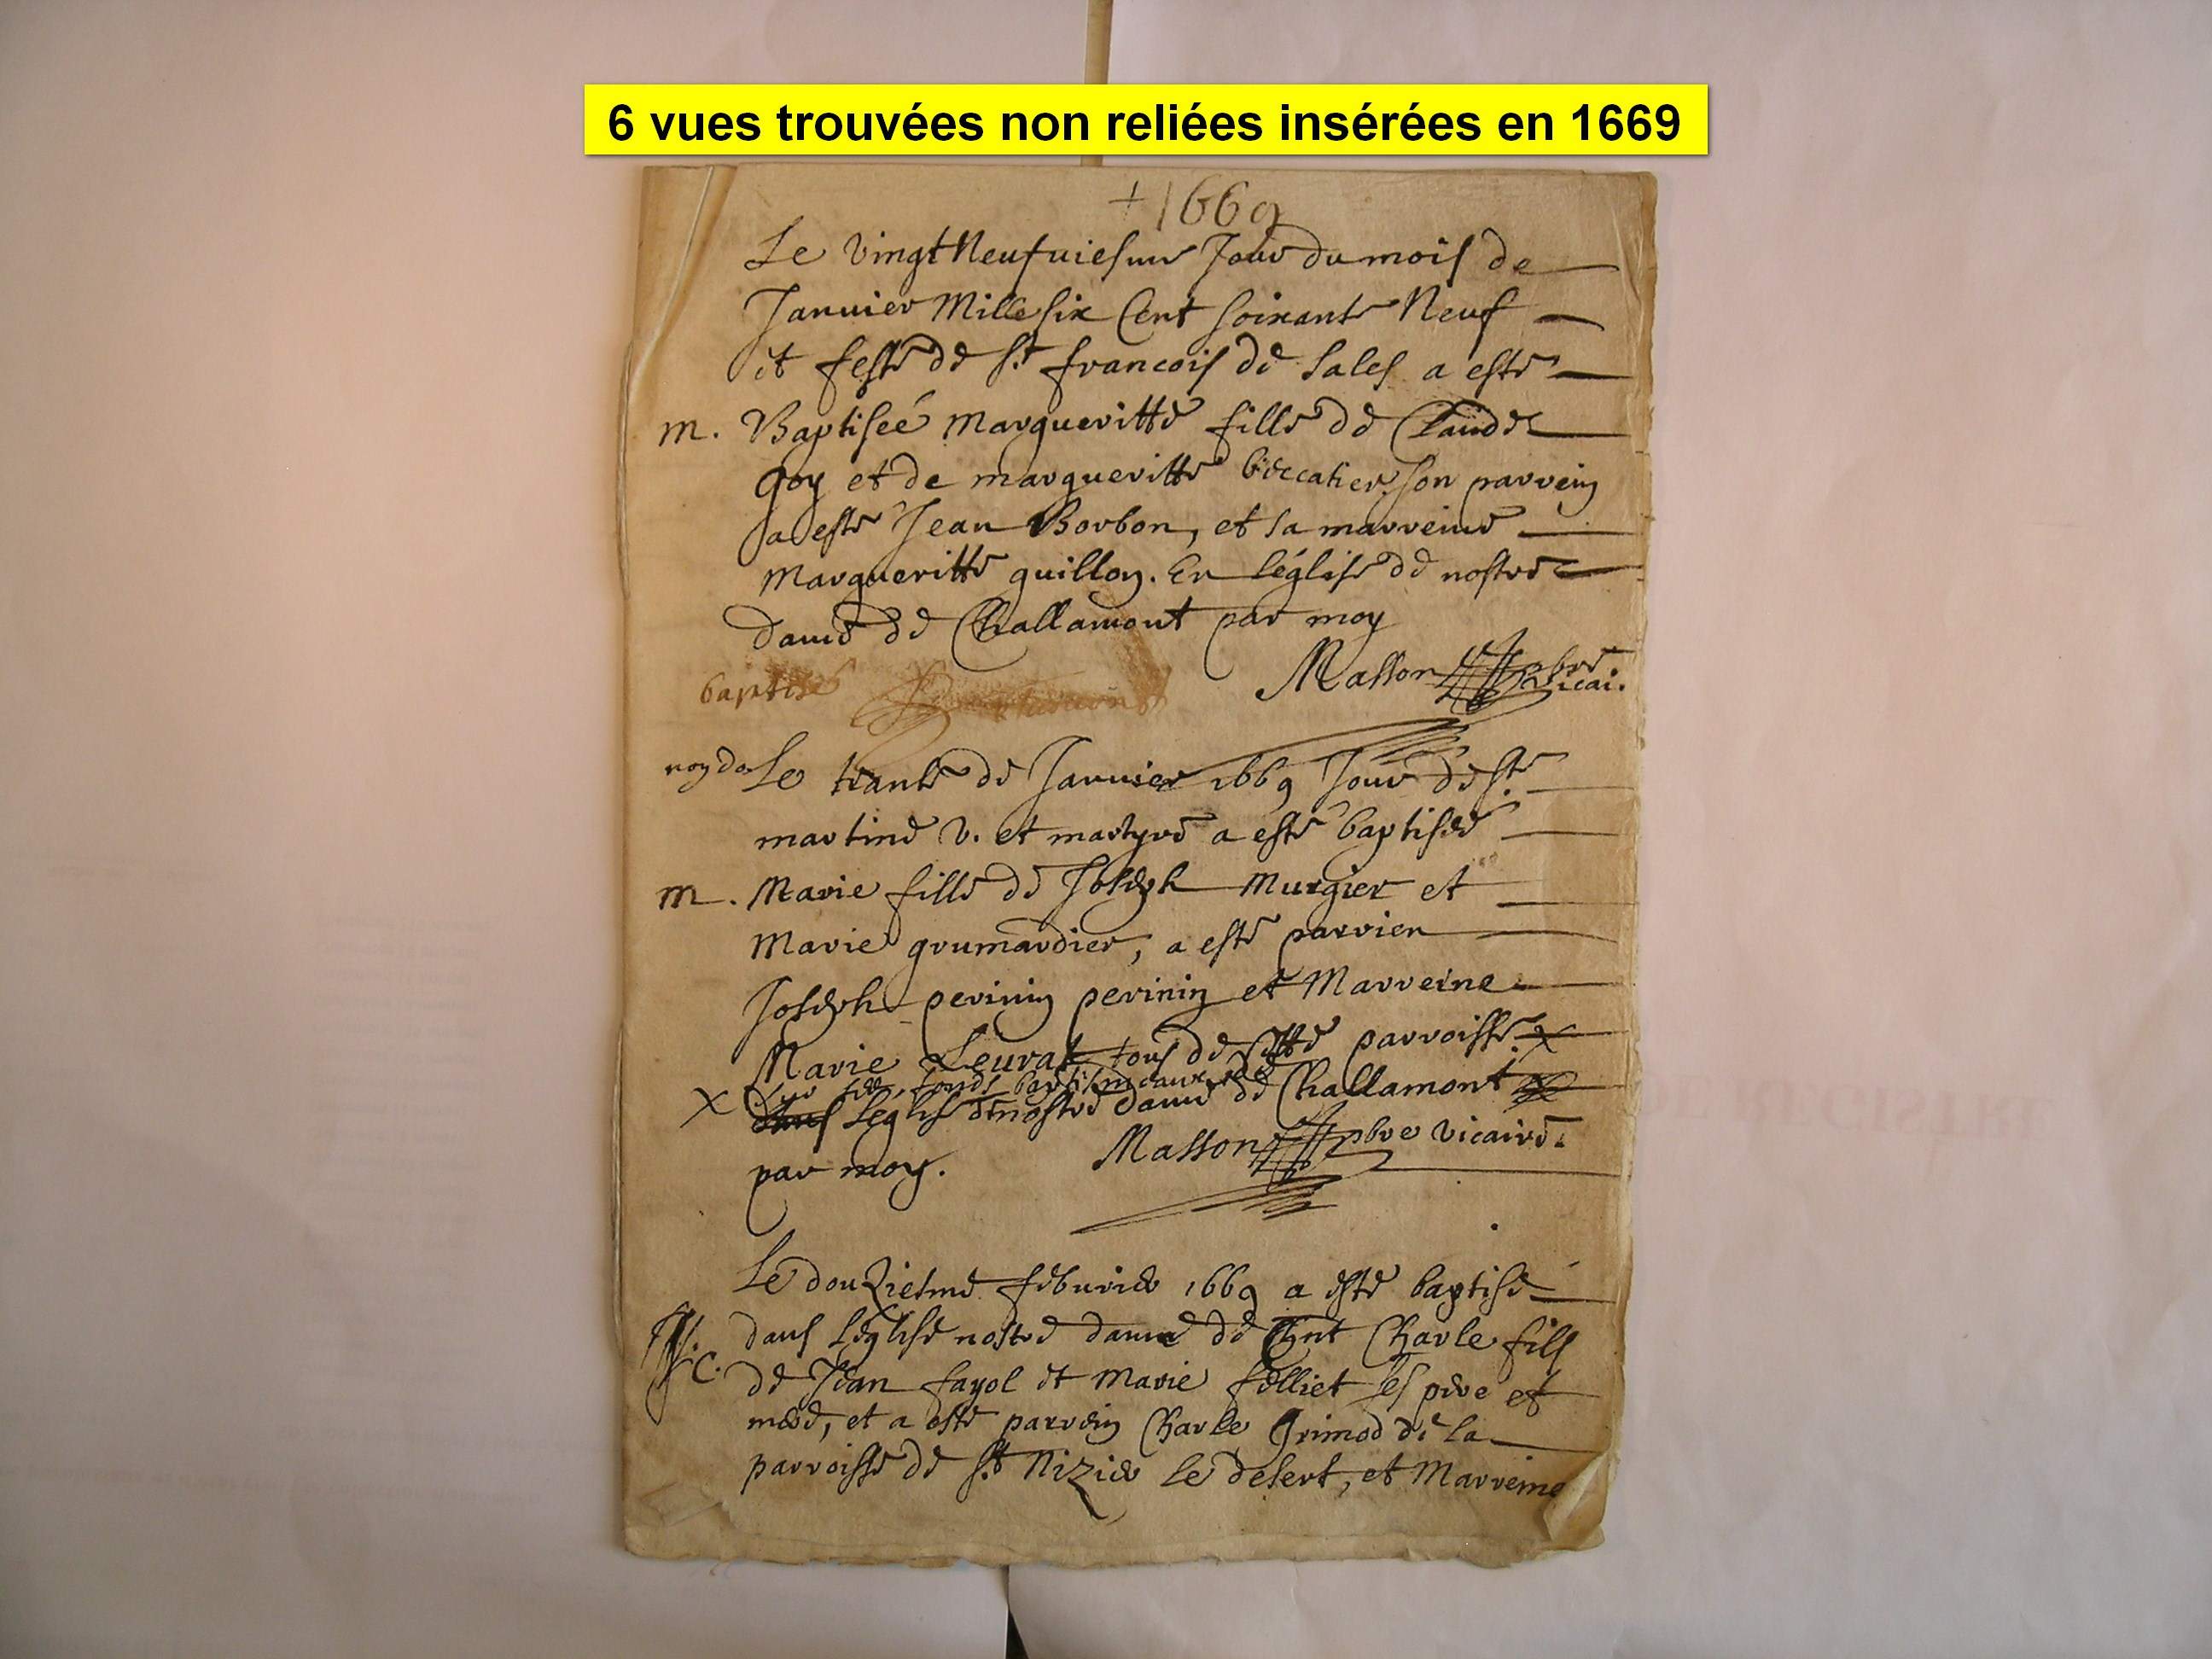 6 vues trouvées non reliées insérées en 1669
+ 1669
Le vingt Neufuiesme Jour du mois de
Januier Mille six Cent soixante Neuf
et feste de St francois de Sales a este
m. Baptiseé Margueritte fille de Claude
Goy et de margueritte son parrein
a este Jean Borbon, et sa marreine
Margueritte guillon. En léglise de nostre
dame de Challamont par moy
Masson pbre vicai.
baptisé
Le trante de Januier 1669 Jour de Ste
martine v. et martyre a esté baptisée
m. Marie fille de Joseph Murgier et
Marie grumardier, a esté parrien
Joseph perinin perinin et Marreine
Marie Leurat tous de cette parroisse x
x sur les fonds baptismeaux de
dans léglise de nostre dame de Challamont
par moy. Masson pbre vicaire.
Le douziesme feburier 1669 a esté baptisé
dans léglise nostre dame de Chnt Charle fils
C. de Jean fayol et Marie felliet ses pere et
mere, et a esté parrein Charle Grimod de la
parroisse de St Nizier le desert, et Marreine